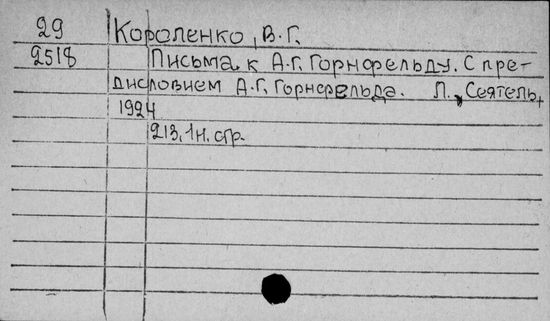 29 Короленко, В.Г.
2518 Письма к А.Г. Горнфельду. С пре-
дисловием А.Г. Горнфельда. Л., Сеятель,
1924
213, 1 н. стр.